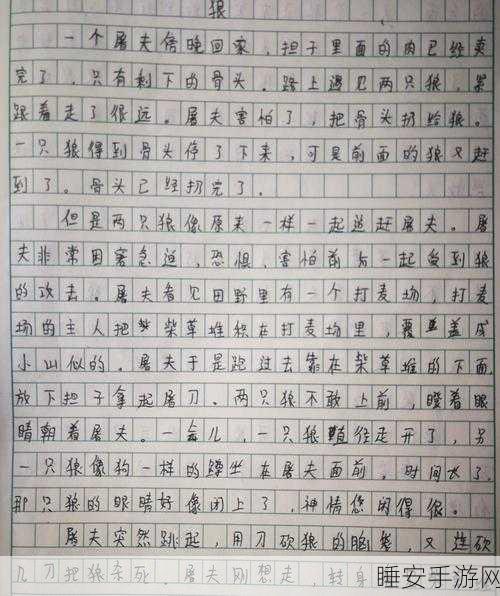 狼
一个屠夫傍晚回家，担子里面的肉已经卖
完了，只有剩下的骨头。路上遇见两只狼，紧
跟着走了很远。屠夫害怕了，把骨头扔给狼。
一只狼得到骨头停了下来，可是前面的狼又赶
到了。骨头已经扔完了。
但是两只狼像原来一样一起追赶屠夫。屠
夫非常困窘急迫，恐惧，害怕前后一起受到狼
的攻击。屠夫看见田野里有一个打麦场，打麦
场的主人把柴草堆积在打麦场里，覆盖成
小山似的。屠夫于是跑过去靠在柴草堆的下面，
放下担子拿起屠刀。两只狼不敢上前，瞪着眼
睛朝着屠夫。一会儿，一只狼径走开了，另
一只狼像狗一样的蹲坐在屠夫面前。时间长了，
那只狼的眼睛好像闭上了，神情悠闲得很。
屠夫突然跳起，用刀砍狼的脑袋，又连砍
几刀把狼杀死。屠夫刚想走，转身
睡安手游网